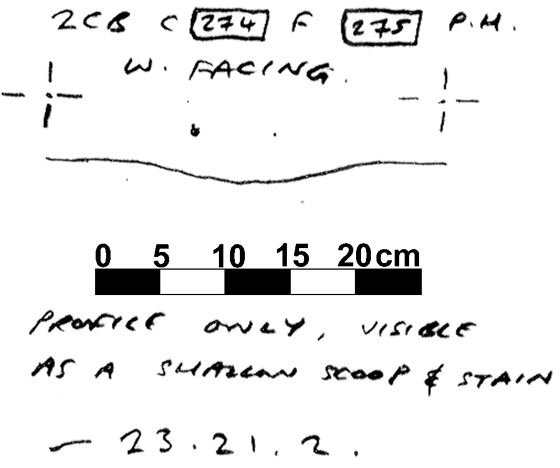 2CB C 274 F 275 P.H.
W. FACING.
0 5 10 15 20cm
PROFILE ONLY, VISIBLE
AS A SHALLOW SCOOP & STAIN
— 23.21.2.